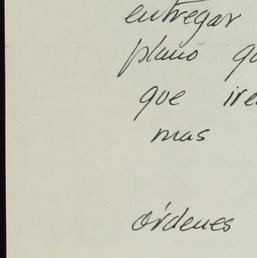 entregar
plano
que
mas
órdenes